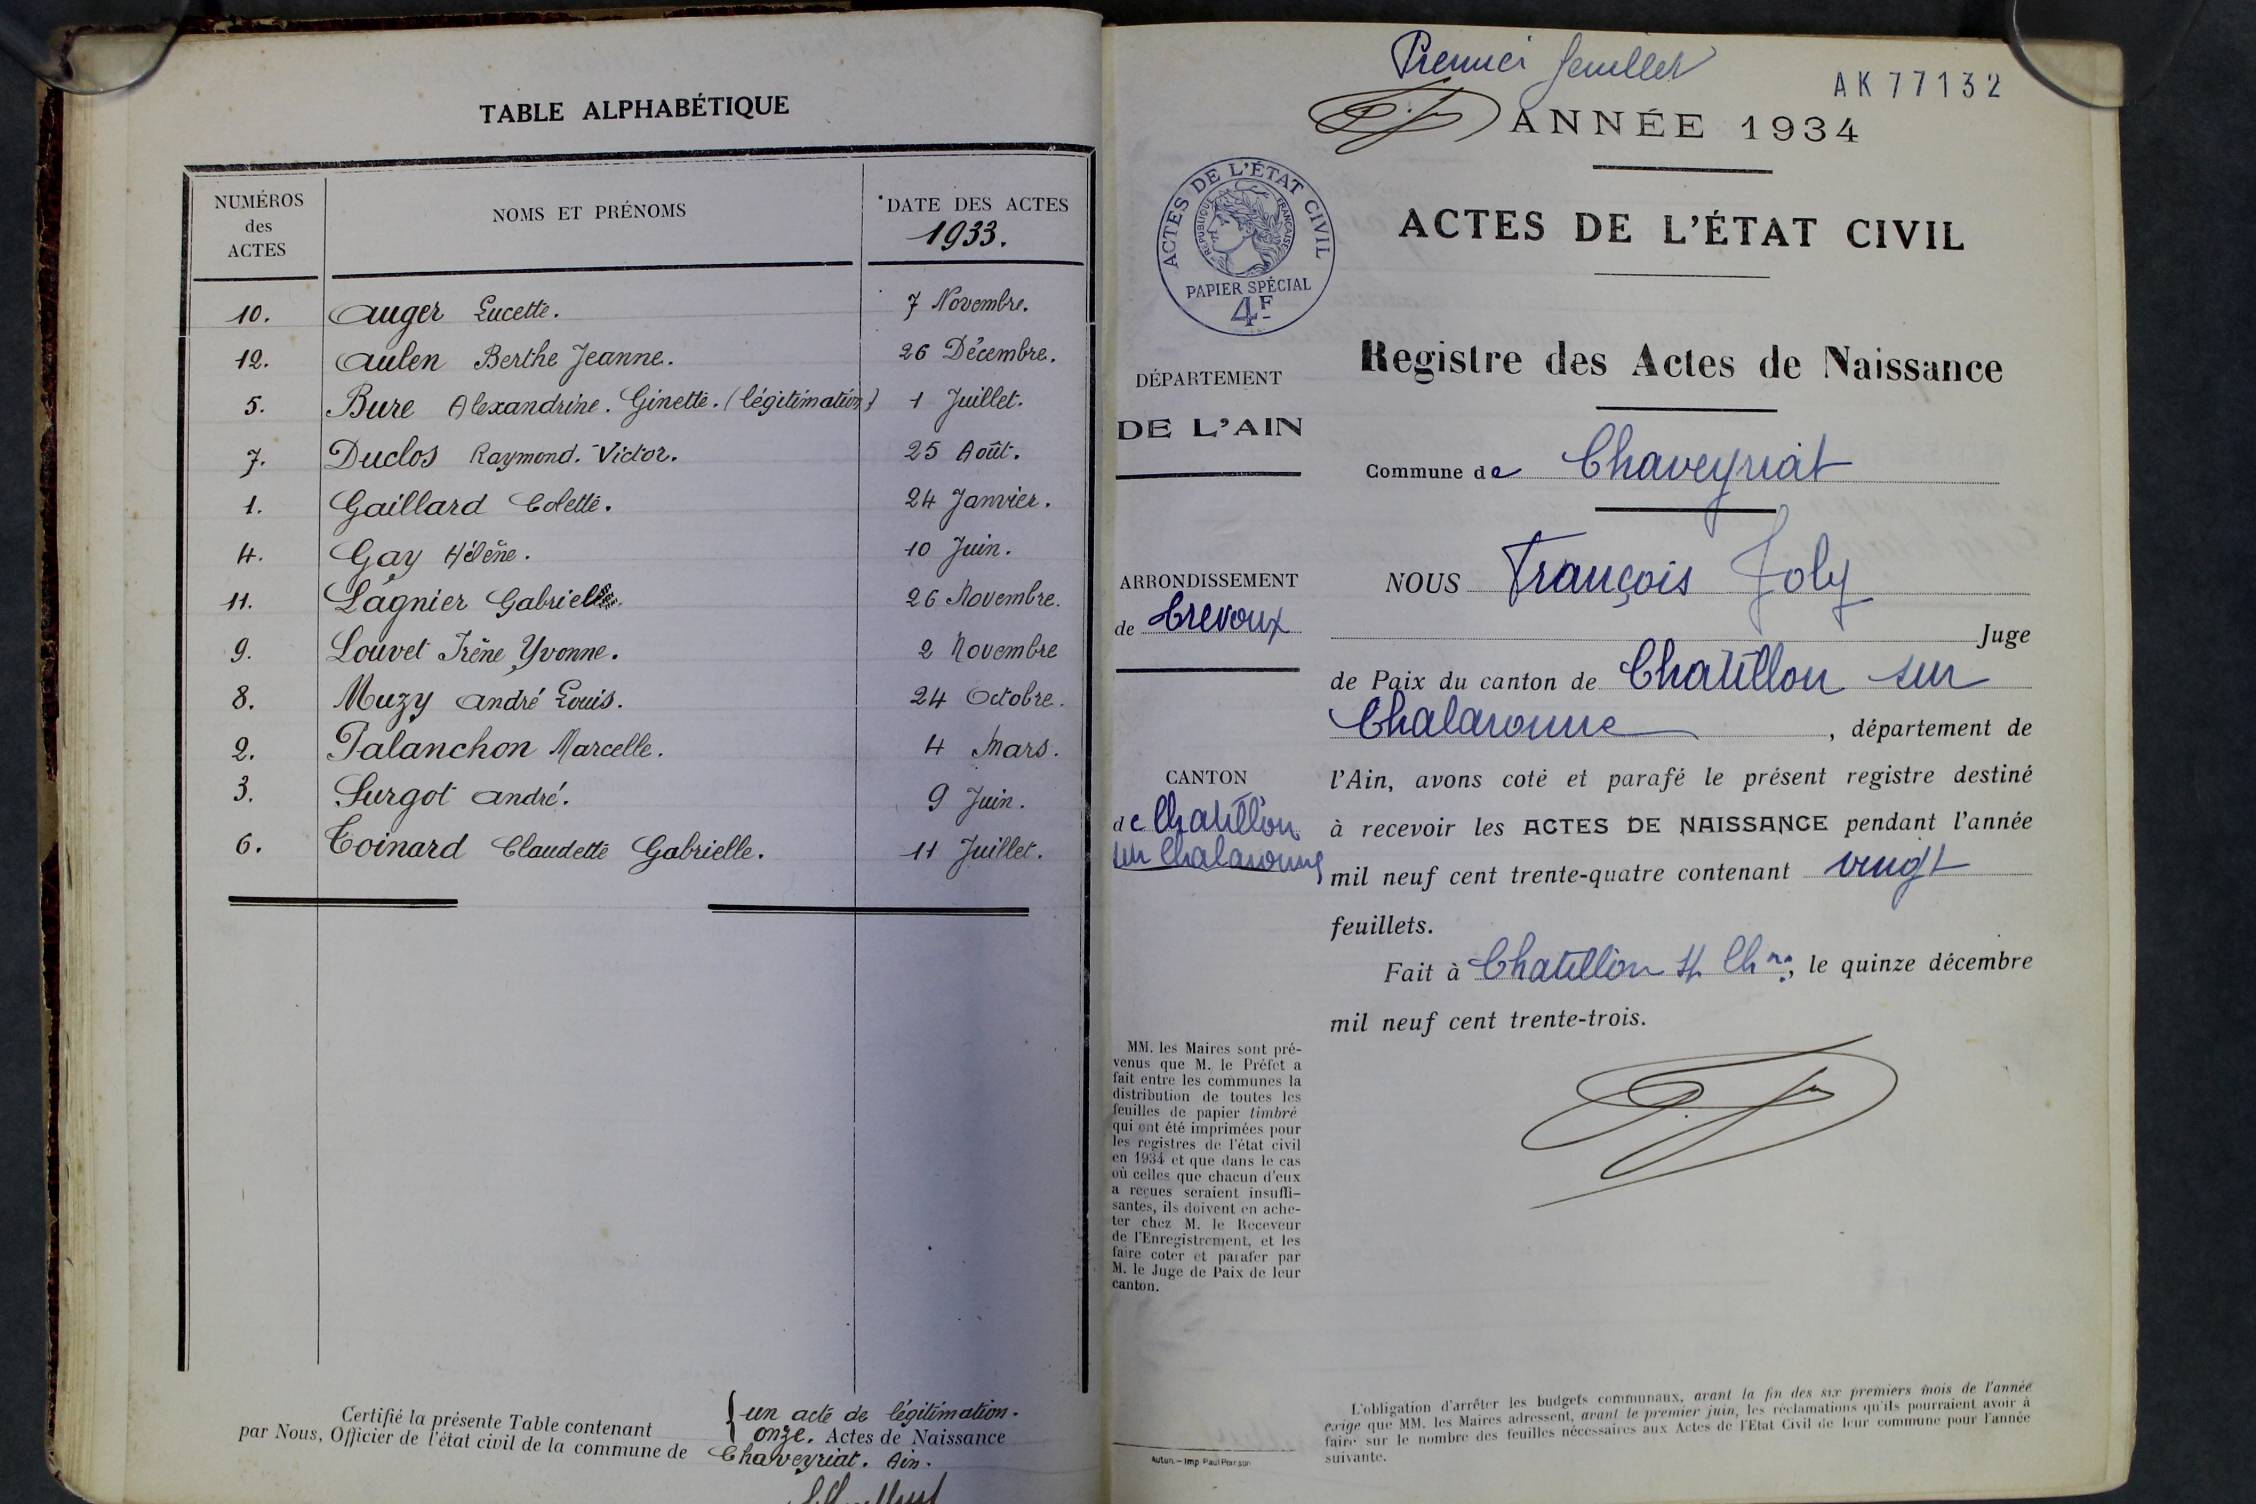 TABLE ALPHABÉTIQUE
NUMÉROS
des
ACTES
NOMS ET PRÉNOMS
DATE DES ACTES
1933.
10. Auger Lucette. 7 Novembre.
12. Aulen Berthe Jeanne. 26 Décembre.
5. Bure Alexandrine. Ginette. (légitimation) 1 Juillet.
7. Duclos Raymond. Victor. 25 Août.
1. Gaillard Colette. 24 Janvier.
4. Gay Hélène. 10 Juin.
11. Lagnier Gabriel 26 Novembre.
9. Louvet Irène Yvonne. 2 Novembre
8. Muzy André Louis. 24 Octobre.
2. Palanchon Marcelle. 4 Mars.
3. Surgot André. 9 Juin.
6. Toinard Claudette Gabrielle. 11 Juillet.
Certifié la présente Table contenant { un acte de légitimation.
onze. Actes de Naissance
par Nous, Officier de l'état civil de la commune de Chaveyriat. Ain.
Premier feuillet
AK 77132
ANNÉE 1934
ACTES DE L'ÉTAT CIVIL
RÉPUBLIQUE FRANÇAISE
PAPIER SPÉCIAL
4F
ACTES DE L'ÉTAT CIVIL
Registre des Actes de Naissance
DÉPARTEMENT
DE L'AIN
Commune de Chaveyriat
ARRONDISSEMENT
de Trévoux
CANTON
de Chatillon
sur Chalaronne
NOUS François Joly
Juge
de Paix du canton de Chatillon sur
Chalaronne, département de
l'Ain, avons coté et parafé le présent registre destiné
à recevoir les ACTES DE NAISSANCE pendant l'année
mil neuf cent trente-quatre contenant vingt
feuillets.
Fait à Chatillon s/ Chne, le quinze décembre
mil neuf cent trente-trois.
MM. les Maires sont pré-
venus que M. le Préfet a
fait entre les communes la
distribution de toutes les
feuilles de papier timbré
qui ont été imprimées pour
les registres de l'état civil
en 1934 et que dans le cas
où celles que chacun d'eux
a reçues seraient insuffi-
santes, ils doivent en ache-
ter chez M. le Receveur
de l'Enregistrement, et les
faire coter et parafer par
M. le Juge de Paix de leur
canton.
Autun. - Imp. Paul Pernson
L'obligation d'arrêter les budgets communaux, avant la fin des six premiers mois de l'année
exige que MM. les Maires adressent, avant le premier juin, les réclamations qu'ils pourraient avoir à
faire sur le nombre des feuilles nécessaires aux Actes de l'Etat Civil de leur commune pour l'année
suivante.